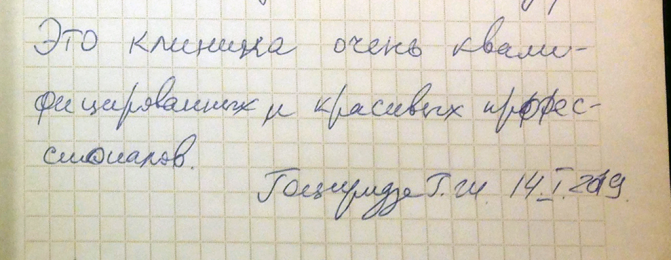 Это клиника очень квали-
фицированных и красивых профес-
сионалов.
Гоциридзе Г.Ш. 14.I.2019.